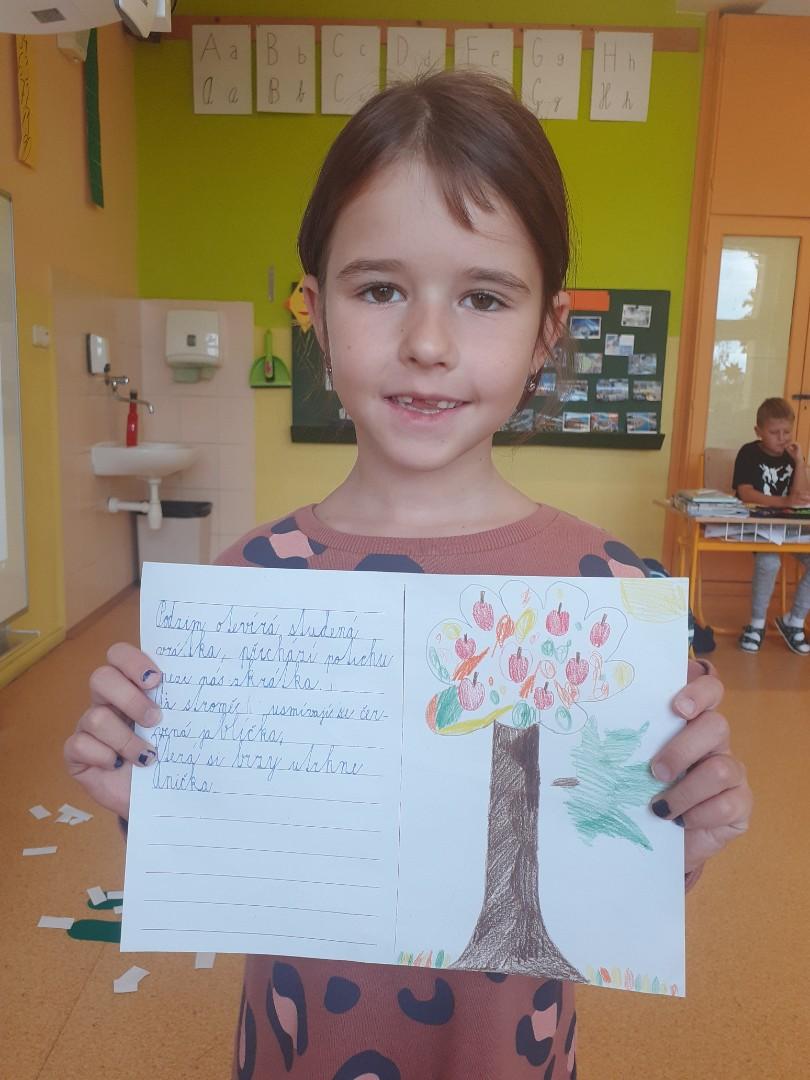 A a
B b
C c
D d
E e
G g
H h
A a
B b
C
G g
H h
Podzim otevírá studená
vrátka, přichází potichu
mezi nás zkrátka.
Na stromě usmívají se čer-
vená jablíčka,
která si brzy utrhne
Anička.